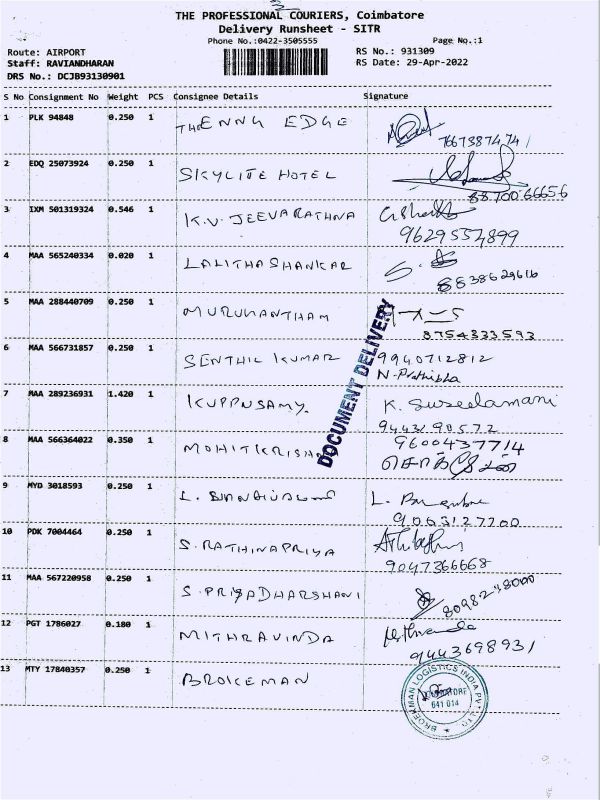 THE PROFESSIONAL COURIERS, Coimbatore
Delivery Runsheet - SITR
Phone No.:0422-3505555 Page No.:1
Route: AIRPORT RS No.: 931309
Staff: RAVIANDHARAN RS Date: 29-Apr-2022
DRS No.: DCJB93130901
S No Consignment No Weight PCS Consignee Details Signature
1 PLK 94848 0.250 1 THE NNG EDGE
7667387474
2 EDQ 25073924 0.250 1 SKYLITE HOTEL
88700 66656
3 IXM 501319324 0.546 1 K.V. JEEVARATHNA
9629557899
4 MAA 565240334 0.020 1 LALITHA SHANKAR
8838629616
5 MAA 288440709 0.250 1 MURUHANTHAM
8754333593
6 MAA 566731857 0.250 1 SENTHIL KUMAR 9940712812
N. Prathibha
DOCUMENT DELIVERY
7 MAA 289236931 1.420 1 KUPPUSAMY. K. Suseelamani
9443190572
8 MAA 566364022 0.350 1 MOHIT KRISHNA 9600437714
9 MYD 3018593 0.250 1 L.
L.
9003127700
10 PDK 7004464 0.250 1 S. RATHINAPRIYA
9047366668
11 MAA 567220958 0.250 1 S. PRIYADHARSHANI
8098248000
12 PGT 1786027 0.180 1 MITHRAVINDA
9443698931
13 MTY 17840357 0.250 1 BROKEMAN
BROEKMAN LOGISTICS INDIA PVT LTD
COIMBATORE
641 014